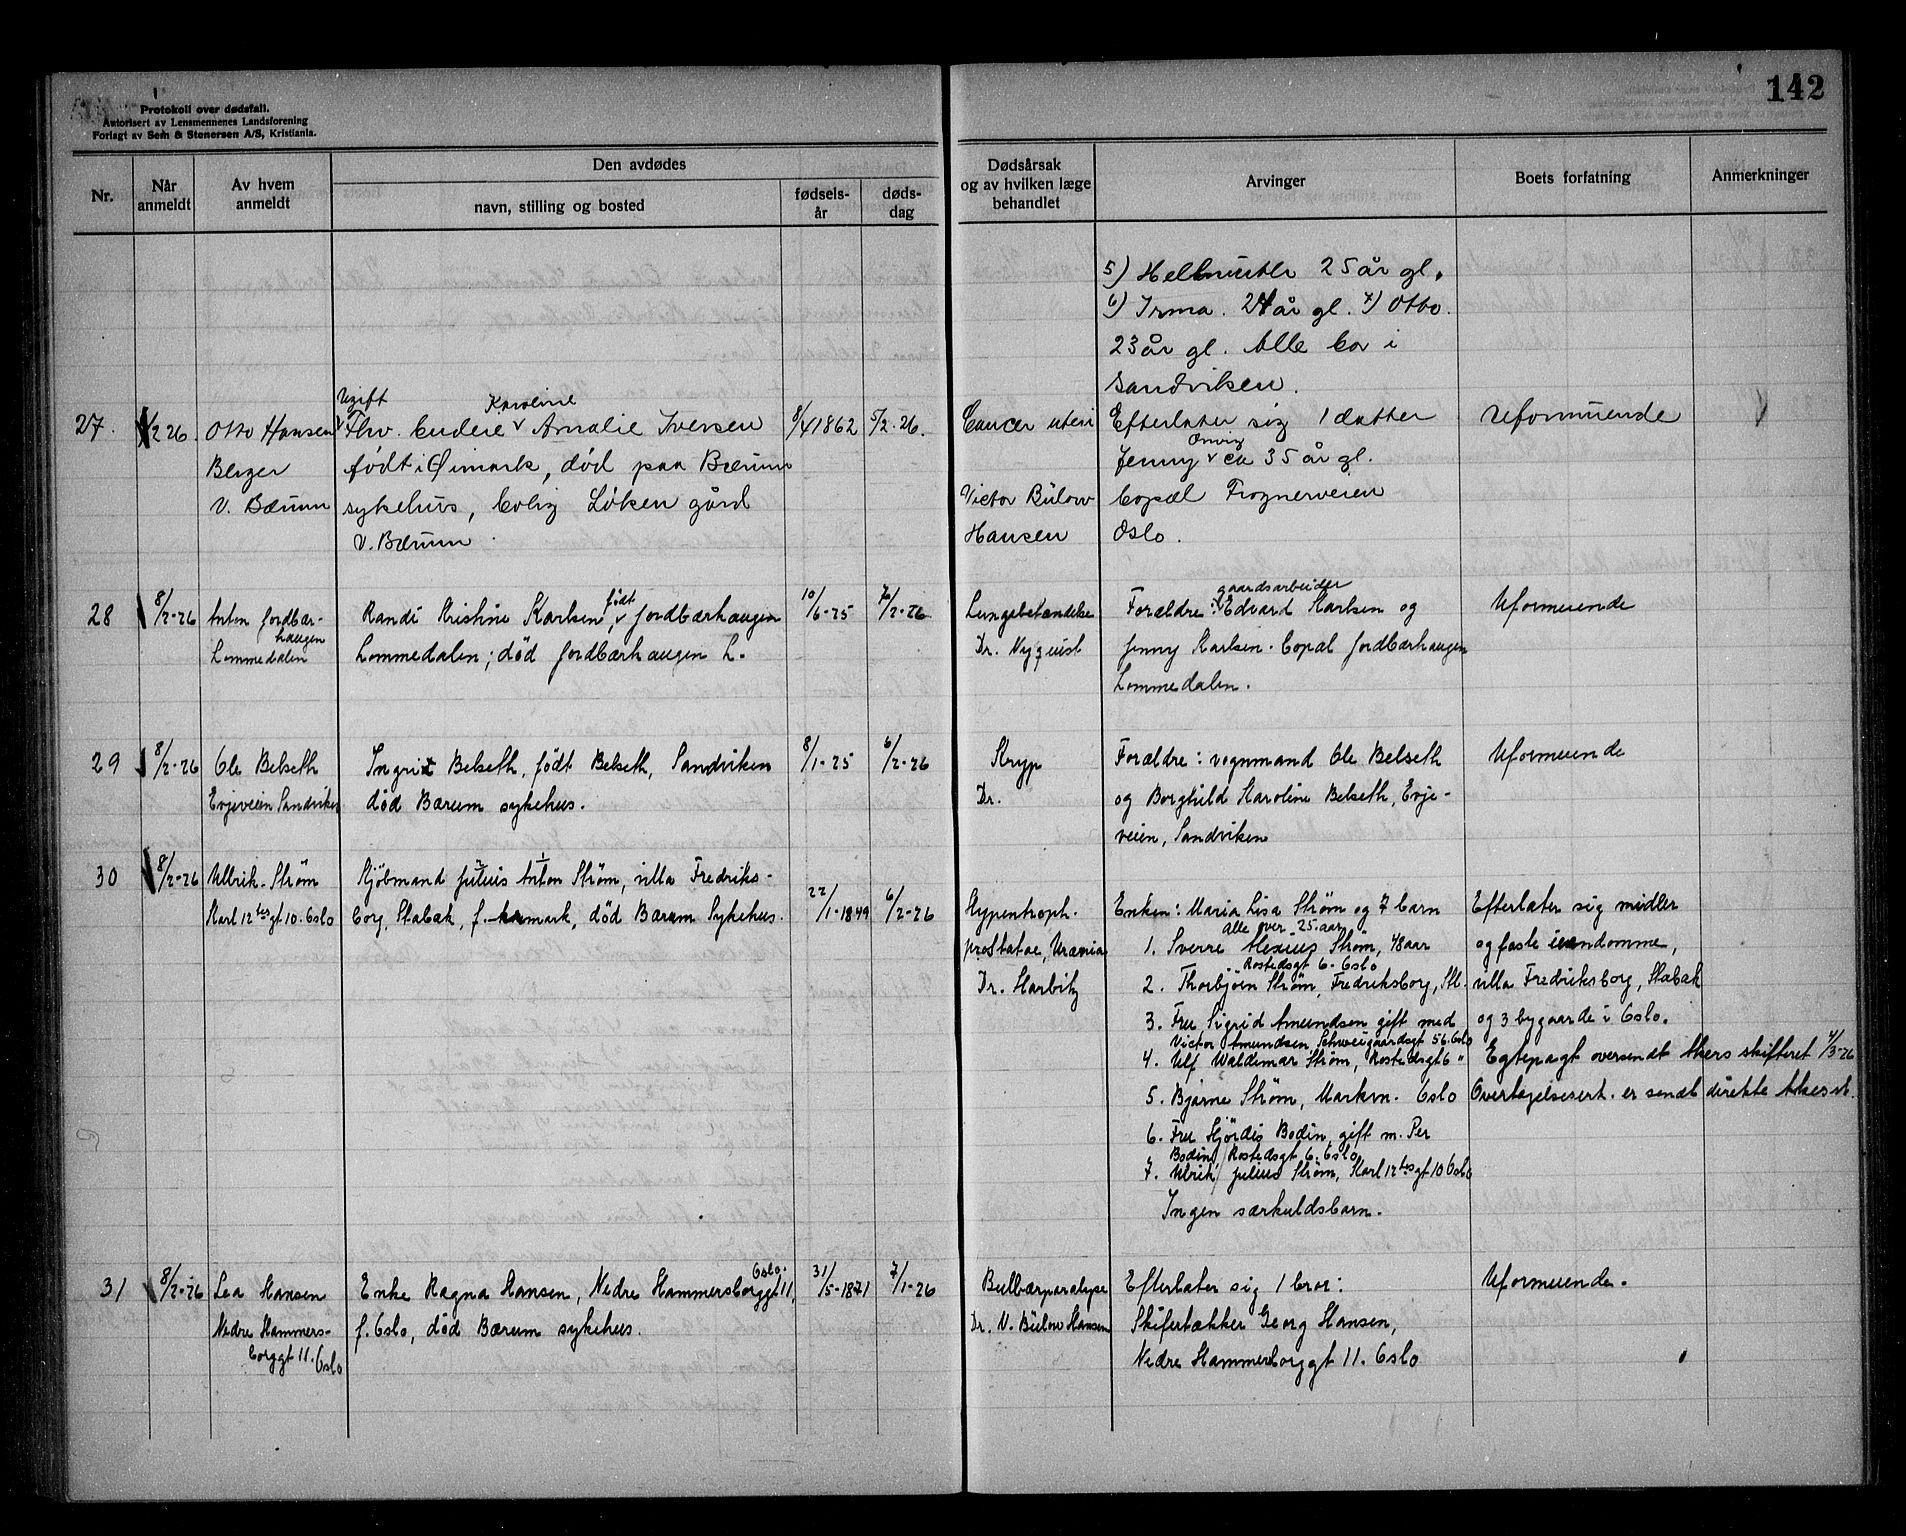 Protokoll over dødsfall.
Autorisert av Lensmennenes Landsforening
Forlagt av Sem & Stenersen A/S, Kristiania.
142
Nr.
Når anmeldt
Av hvem anmeldt
Den avdødes
navn, stilling og bosted
fødsels-år
døds-dag
Dødsårsak
og av hvilken læge
behandlet
Arvinger
Boets forfatning
Anmerkninger
5) 25 år gl.
6) Irma. 24 år gl. 7) Otto.
23 år gl. Alle bor i
Sandviken.
27.
/2 26
Otto Hansen
Berger
V. Bærum
Ugift Karoline
Fhv. budeie Amalie Iversen
født i Øimark, død paa Bærum
sykehus, bolig Løken gård
V. Bærum.
8/4 1862
5/2-26.
Cancer uteri
Victor Bülow
Hansen
Efterlater sig 1 datter
Jenny ca 35 år gl.
bopæl Frognerveien
Oslo.
Uformuende
28
8/2-26
Anton Jordbær-
haugen
Lommedalen
Randi Kristine Karlsen, født Jordbærhaugen
Lommedalen; død Jordbærhaugen L.
10/6-25
7/2-26
Lungebetændelse
Dr. Nyquist
gaardsarbeider
Forældre: Edvard Karlsen og
Jenny Karlsen. bopæl Jordbærhaugen
Lommedalen.
Uformuende
29
8/2-26
Ole Belseth
Evjeveien Sandviken
Ingrid Belseth, født Belseth, Sandviken
død Bærum sykehus.
8/1-25
6/2-26
Kryp
Dr.
Forældre: vognmand Ole Belseth
og Borghild Karoline Belseth, Evje-
veien, Sandviken
Uformuende
30
8/2-26
Ulrik Strøm
Karl 12tes gt 10. Oslo
2 1
Kjøbmand Julius Anton Strøm, villa Fredriks-
borg, Stabæk, f. død Bærum Sykehus.
22/1-1849
6/2-26
Hypentroph.
prostatae, Uræmia
Dr. Harbitz
Enken: Maria Lisa Strøm og 7 barn
alle over 25 aar
1. Sverre Alexius Strøm, 48 aar
Rostedsgt 6. Oslo
2. Thorbjørn Strøm, Fredriksborg, Stb.
3. Fru Sigrid Amundsen gift med
Victor Amundsen, Schweigaardsgt 56. Oslo
4. Ulf Waldemar Strøm, Rostedsgt 6 "
5. Bjarne Strøm, Markvn. Oslo
6. Fru Hjördis Bodin, gift m. Per
Bodin, Rostedsgt 6. Oslo
7. Ulrik Julius Strøm, Karl 12tes gt 10 Oslo
Ingen særkuldsbarn.
Efterlater sig midler
og faste eiendomme,
villa Fredriksborg, Stabæk
og 3 bygaarde i Oslo.
Egtepagt oversendt Akers skifteret 4/3-26
Overtagelsesert. er sendt direkte
31
8/2-26
Lea Hansen
Nedre Hammers-
borggt 11. Oslo
Oslo.
Enke Ragna Hansen, Nedre Hammersborggt 11,
f. Oslo, død Bærum sykehus.
31/5-1871
7/1-26
Bulbærparalyse
Dr. V. Bülow Hansen
Efterlater sig 1 bror:
Skifertækker Georg Hansen,
Nedre Hammersborggt 11. Oslo
Uformuende.